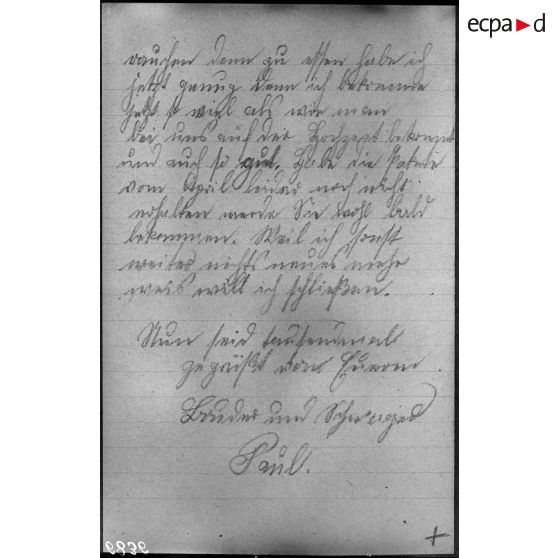 ecpa d
rauchen denn zu essen habe ich
jetzt genug denn ich bekomme
jetzt so viel als wie man
bei uns auf der Hochzeit bekommt
und auch so gut. Habe die Pakete
vom April leider noch nicht
erhalten werde Sie wohl bald
bekommen. Weil ich sonst
weiter nichts neues mehr
weis will ich schließen.
Nun seid tausendmal
gegrüßt von Euerm
Bruder und Schwager
Paul.